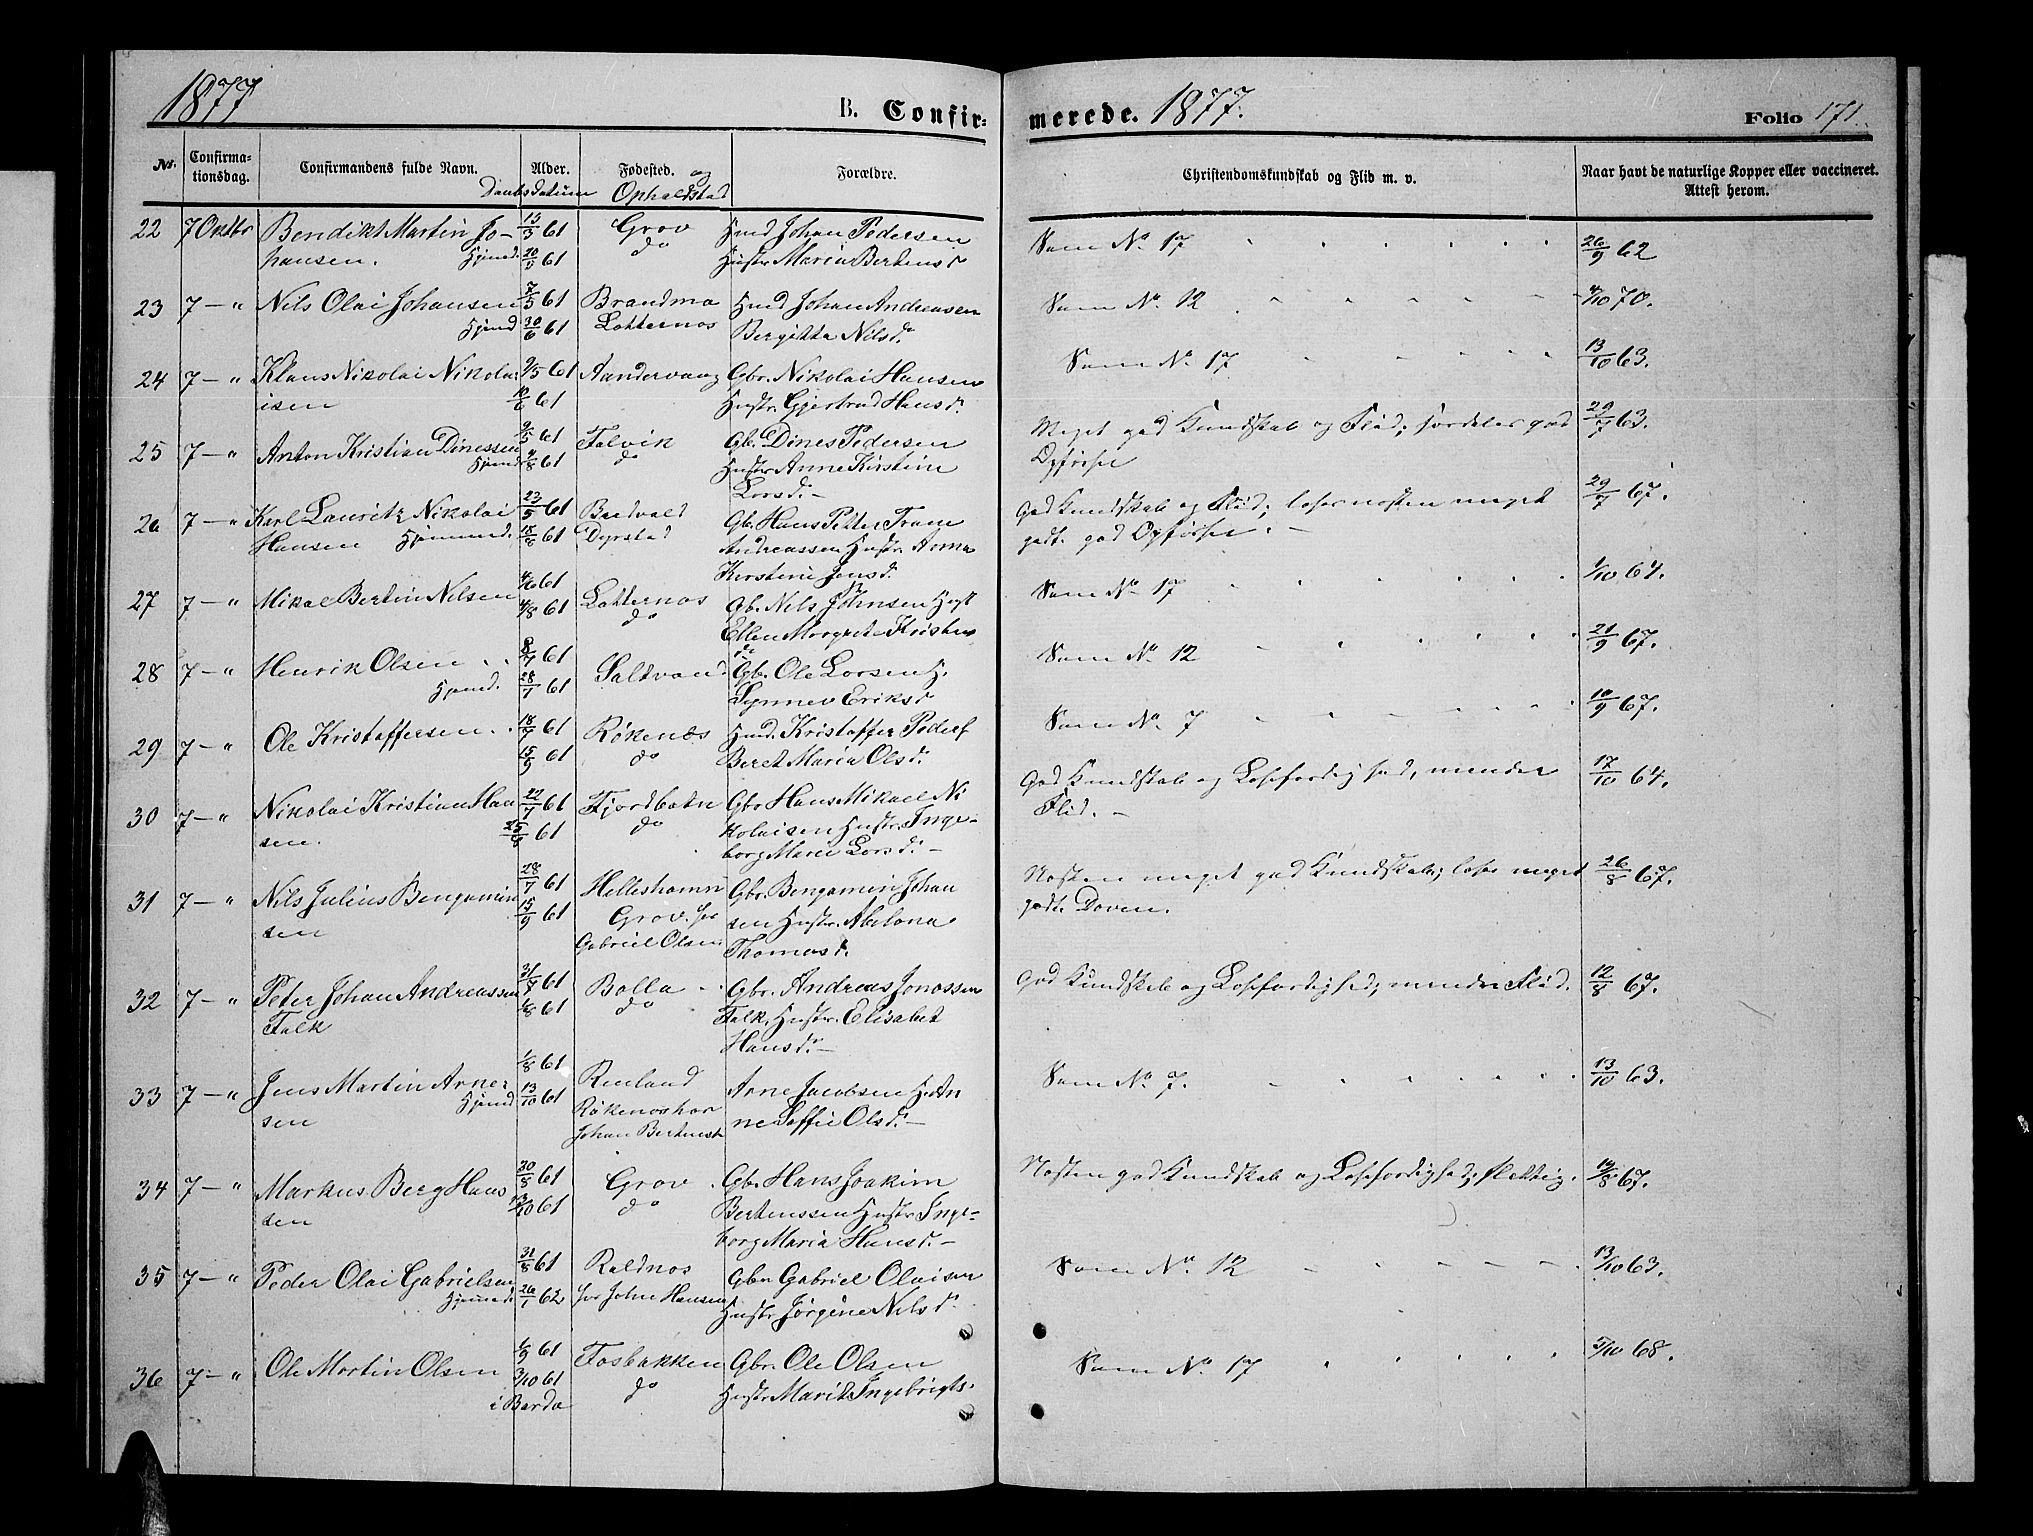 1877
B. Confir=
merede. 1877.
Folio 171.
No. Confirma=tionsdag. Confirmandens fulde Navn. Alder. Fødested. og Forældre. Christendomskundskab og Flid m. v. Naar havt de naturlige Kopper eller vaccineret. Attest herom.
Daabsdatum Opholdsted
22 7 Oktbr Bendikt Martin Jo- 13/3 61 Grov Hmd Johan Pedersen Som No 17 26/9 62
hansen. Hjemd. 20/5 61 do Hustr Maria Bertensd.
23 7 - " Nils Olai Johansen 7/5 61 Brandmo Hmd Johan Andreasen Som No. 12 4/10 70.
Hjemd 30/6 61 Lotternes Bergitta Nilsd.
24 7 - " Klaus Nikolai Nikola= 9/5 61 Aandervaag Gbr. Nikolai Hansen Som No 17 13/10 63.
isen 10/6 61 Hustr. Gjertrud Hansd.
25 7 - " Anton Kristian Dinessen 9/5 61 Falvik Gb. Dines Pedersen Meget god Kundskab og Flid; særdeles god 29/7 63.
Hjemd 4/8 61 do Hustr Anne Kirstine Opførsel
Larsd. -
26 7 - " Karl Lauritz Nikolai 23/5 61 Bredvold Gb. Hans Petter Fram God Kundskab og Flid; læser næsten meget 29/7 67.
Hansen Hjemmed. 18/8 61 Dyrstad Andreassen Hustr. Anna godt. god Opførsel. -
Kirstine Jensd.
27 7 - " Mikal Bertin Nilsen 4/6 61 Lotternes Gb. Nils Johnsen Hust Som No 17 1/10 64.
4/8 61 do Ellen Morgrete Kristens
dr
28 7 - " Henrik Olsen 8/7 61 Saltvand Gb. Ole Larsen H. Som No 12 21/9 67.
Hjemd. 28/7 61 Synnev Eriksd
29 7 - " Ole Kristoffersen. 18/7 61 Røkenæs Hmd. Kristoffer Peders Som No. 7 10/9 67.
15/9 61 do Beret Maria Olsd.
30 7 - " Nikolai Kristian Han 22/7 61 Fjordbotn Gbr Hans Mikael Ni God Kundskab og Læsefærdighed, mindre 17/10 64.
sen. 25/8 61 do kolaisen Hustr. Inge- Flid. -
borg Marie Larsd. -
31 7 - " Nils Julius Bengamin 28/7 61 Helleshamn Gbr. Bengamin Johan Næsten meget god Kundskab; læser meget 26/8 67.
sen 15/9 61 Grov. hos sen Hustr. Abelona godt. Doven.
Gabriel Olsen Thomasd.
32 7 - " Peter Johan Andreassen 31/7 61 Bolla Gbr. Andreas Jonassen God Kundskab og Læsefærdighed; mindre Flid. 12/8 67.
Falk 18/8 61 do Falk, Hustr. Elisabet
Hansd. -
33 7 - " Jens Martin Arne= 1/8 61 Renland Arne Jacobsen H. An Som No 7. 13/10 63.
sen Hjemd 13/10 61 Røkenes hos ne Soffie Olsd. -
Johan Bertensen
34 7 - " Markus Berg Han 30/8 61 Grov Gbr Hans Joakim Næsten god Kundskab og Læsefærdighed; skikkelig. 12/8 67.
sen 13/10 61 do Bertenssen Hustr Inge-
borg Maria Hansd. -
35 7 - " Peder Olai Gabrielsen 31/8 61 Roldnes Gbr Gabriel Olaisen Som No. 12 13/10 63.
Hjemmed. 26/1 62 hos John Hansen Hustr Jørgine Nilsd.
36 7 - " Ole Martin Olsen 1/9 61 Fosbakken Gbr. Ole Olsen Som No. 17 5/10 68.
3/10 61 do Hustr Marit Ingebrigts.
i Bardo